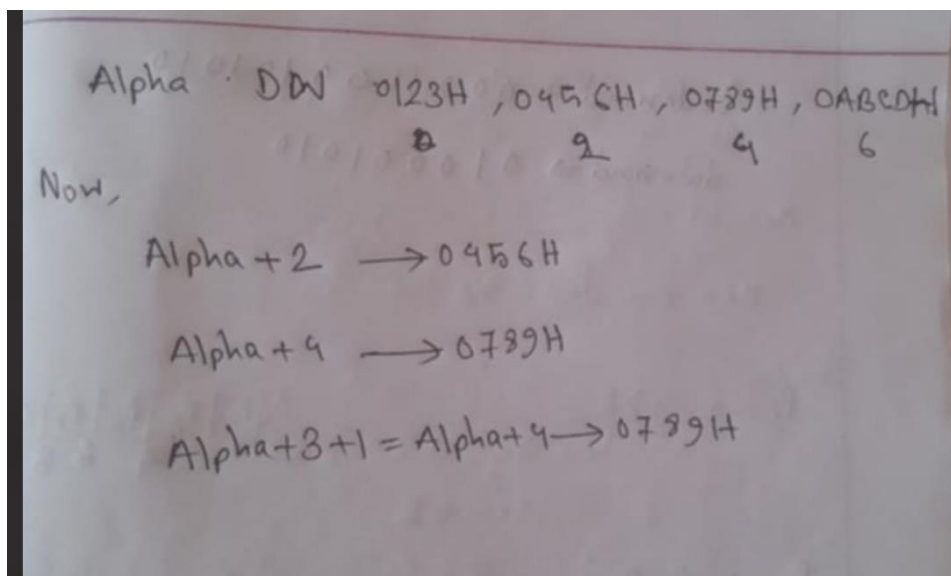 Alpha . DW 0123H , 0456H , 0789H , 0ABCDH
0 2 4 6
Now,
Alpha + 2 → 0456H
Alpha + 4 → 0789H
Alpha+3+1 = Alpha+4 → 0789H